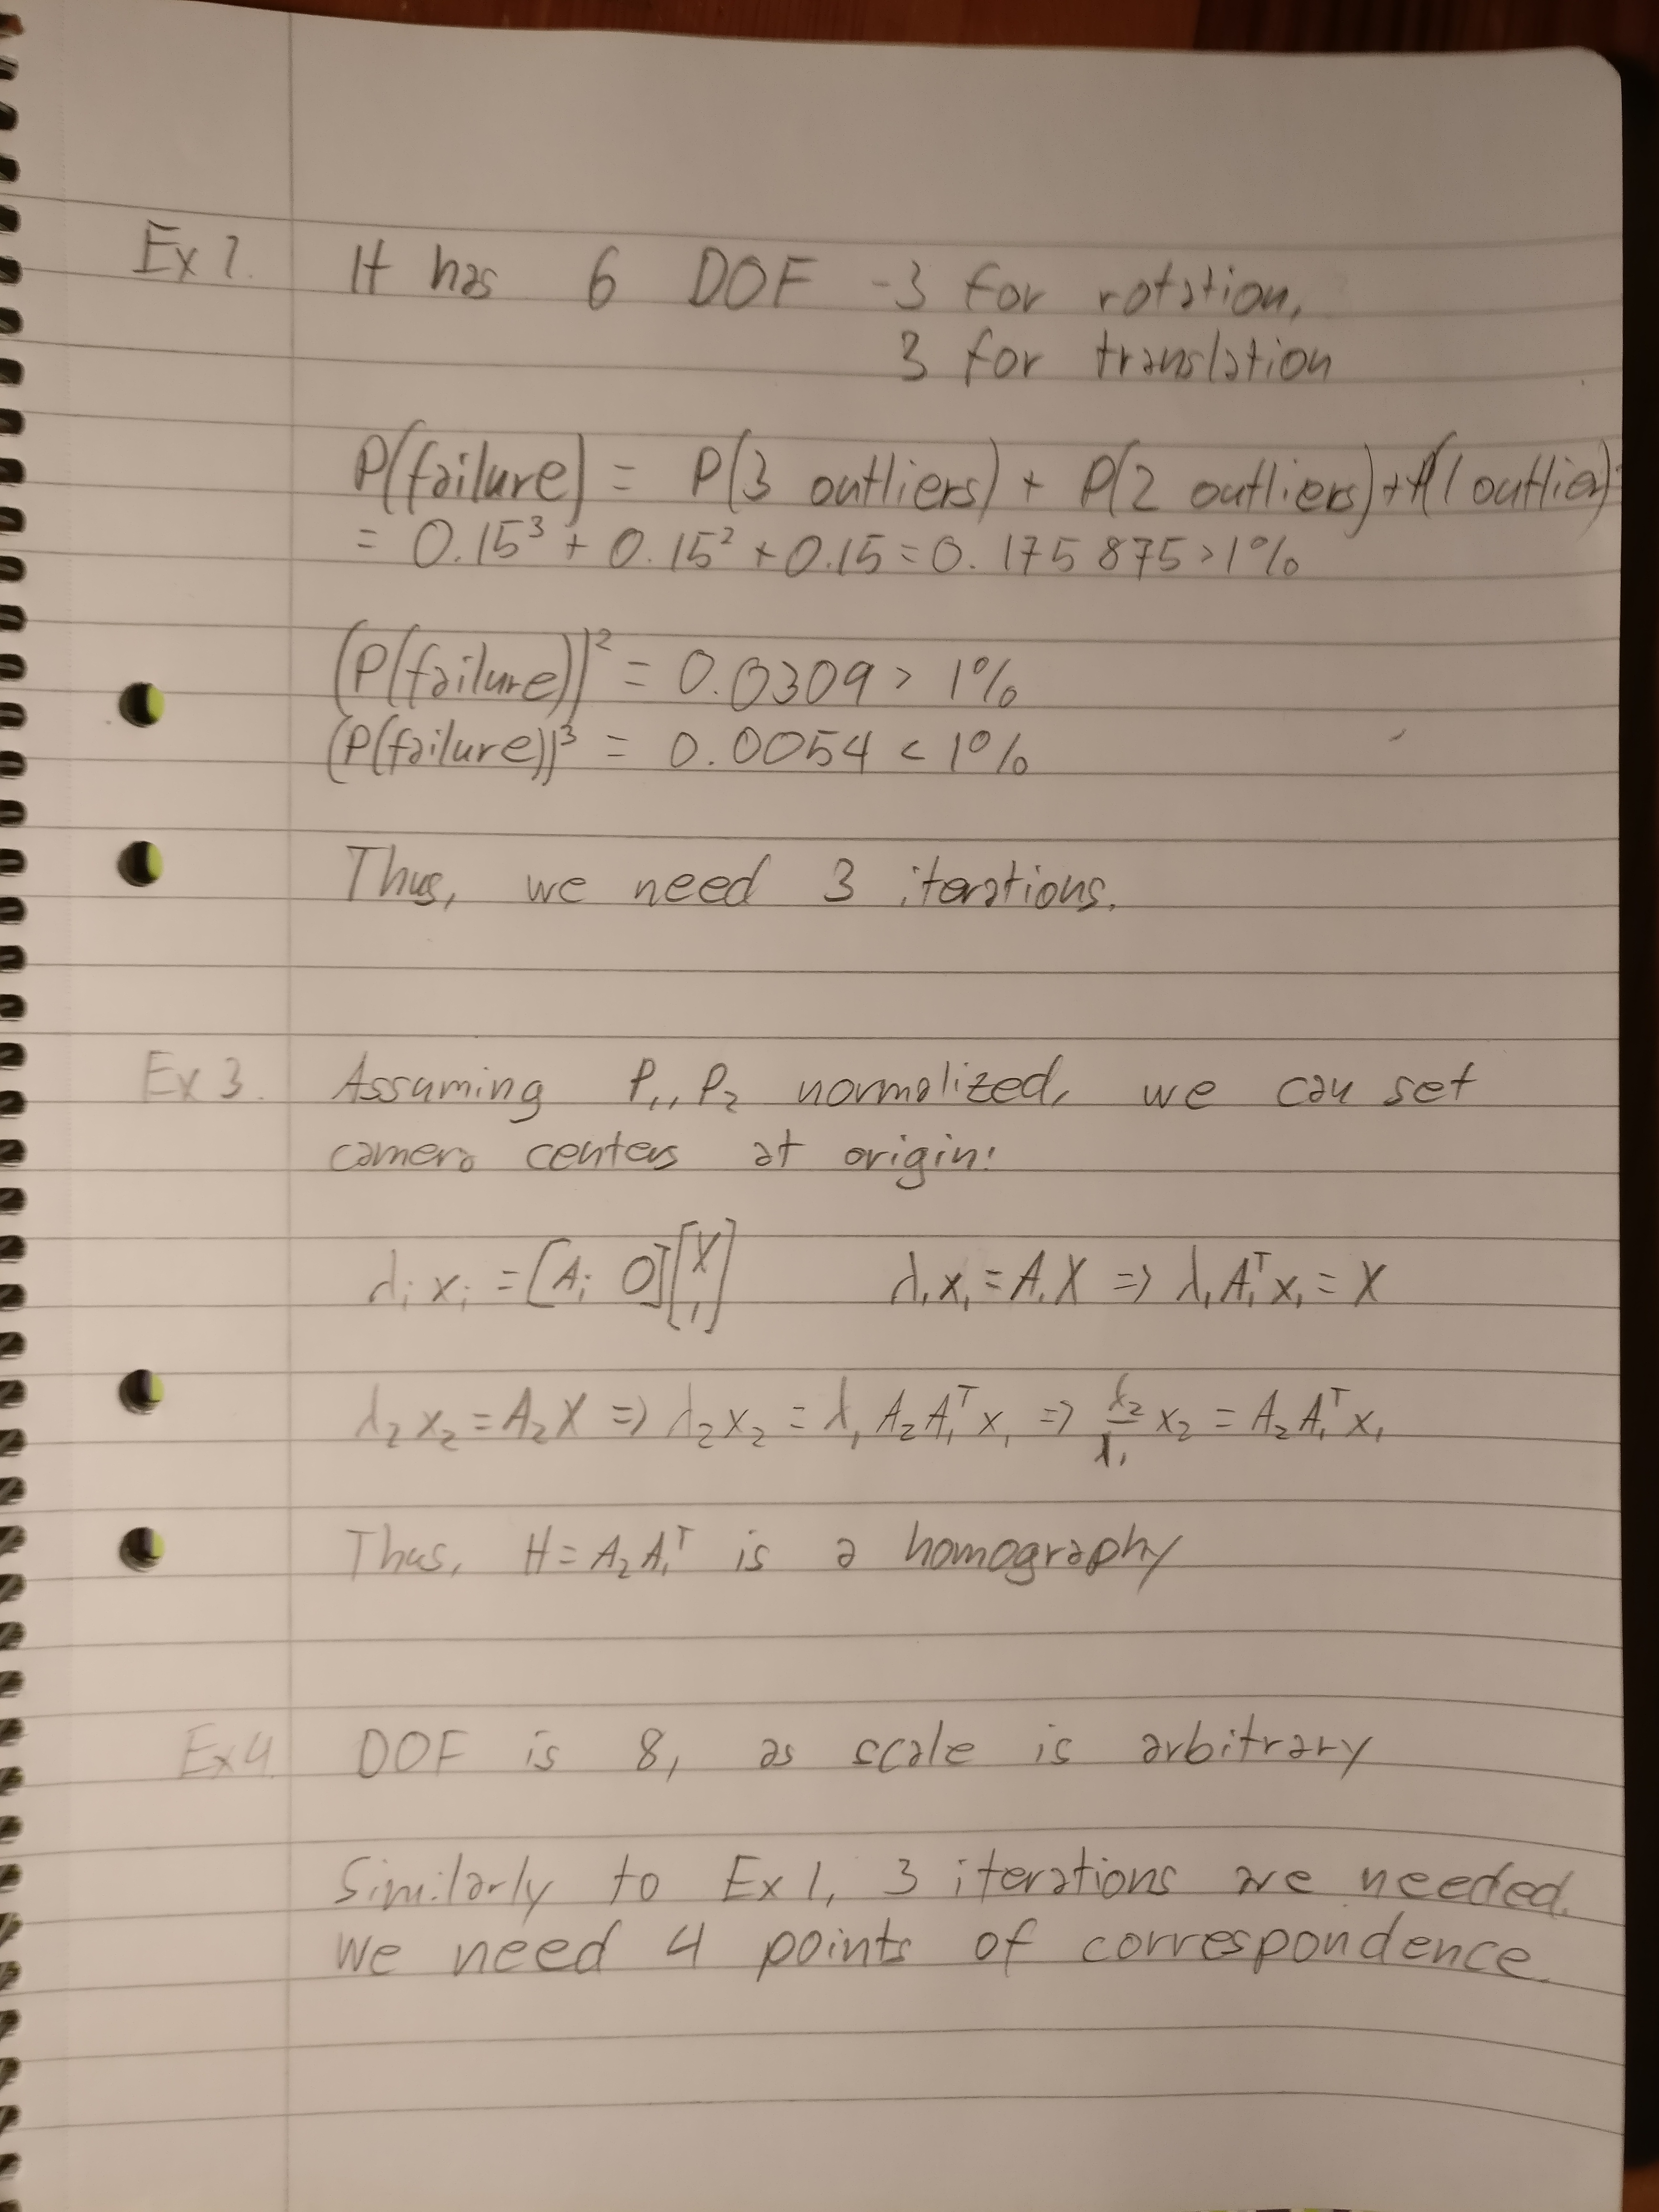 Ex 1. It has 6 DOF - 3 for rotation,
3 for translation
P(failure) = P(3 outliers) + P(2 outliers) + P(1 outlier) =
= 0.15³ + 0.15² + 0.15 = 0.175875 > 1%
(P(failure))² = 0.0309 > 1%
(P(failure))³ = 0.0054 < 1%
Thus, we need 3 iterations.
Ex 3. Assuming P₁, P₂ normalized, we can set
camera centers at origin:
λᵢ xᵢ = [Aᵢ 0] [X 1] λ₁x₁ = A₁X => λ₁A₁ᵀx₁ = X
λ₂x₂ = A₂X => λ₂x₂ = λ₁A₂A₁ᵀx₁ => λ₂/λ₁ x₂ = A₂A₁ᵀx₁
Thus, H = A₂A₁ᵀ is a homography
Ex 4. DOF is 8, as scale is arbitrary
Similarly to Ex 1, 3 iterations are needed.
We need 4 points of correspondence.